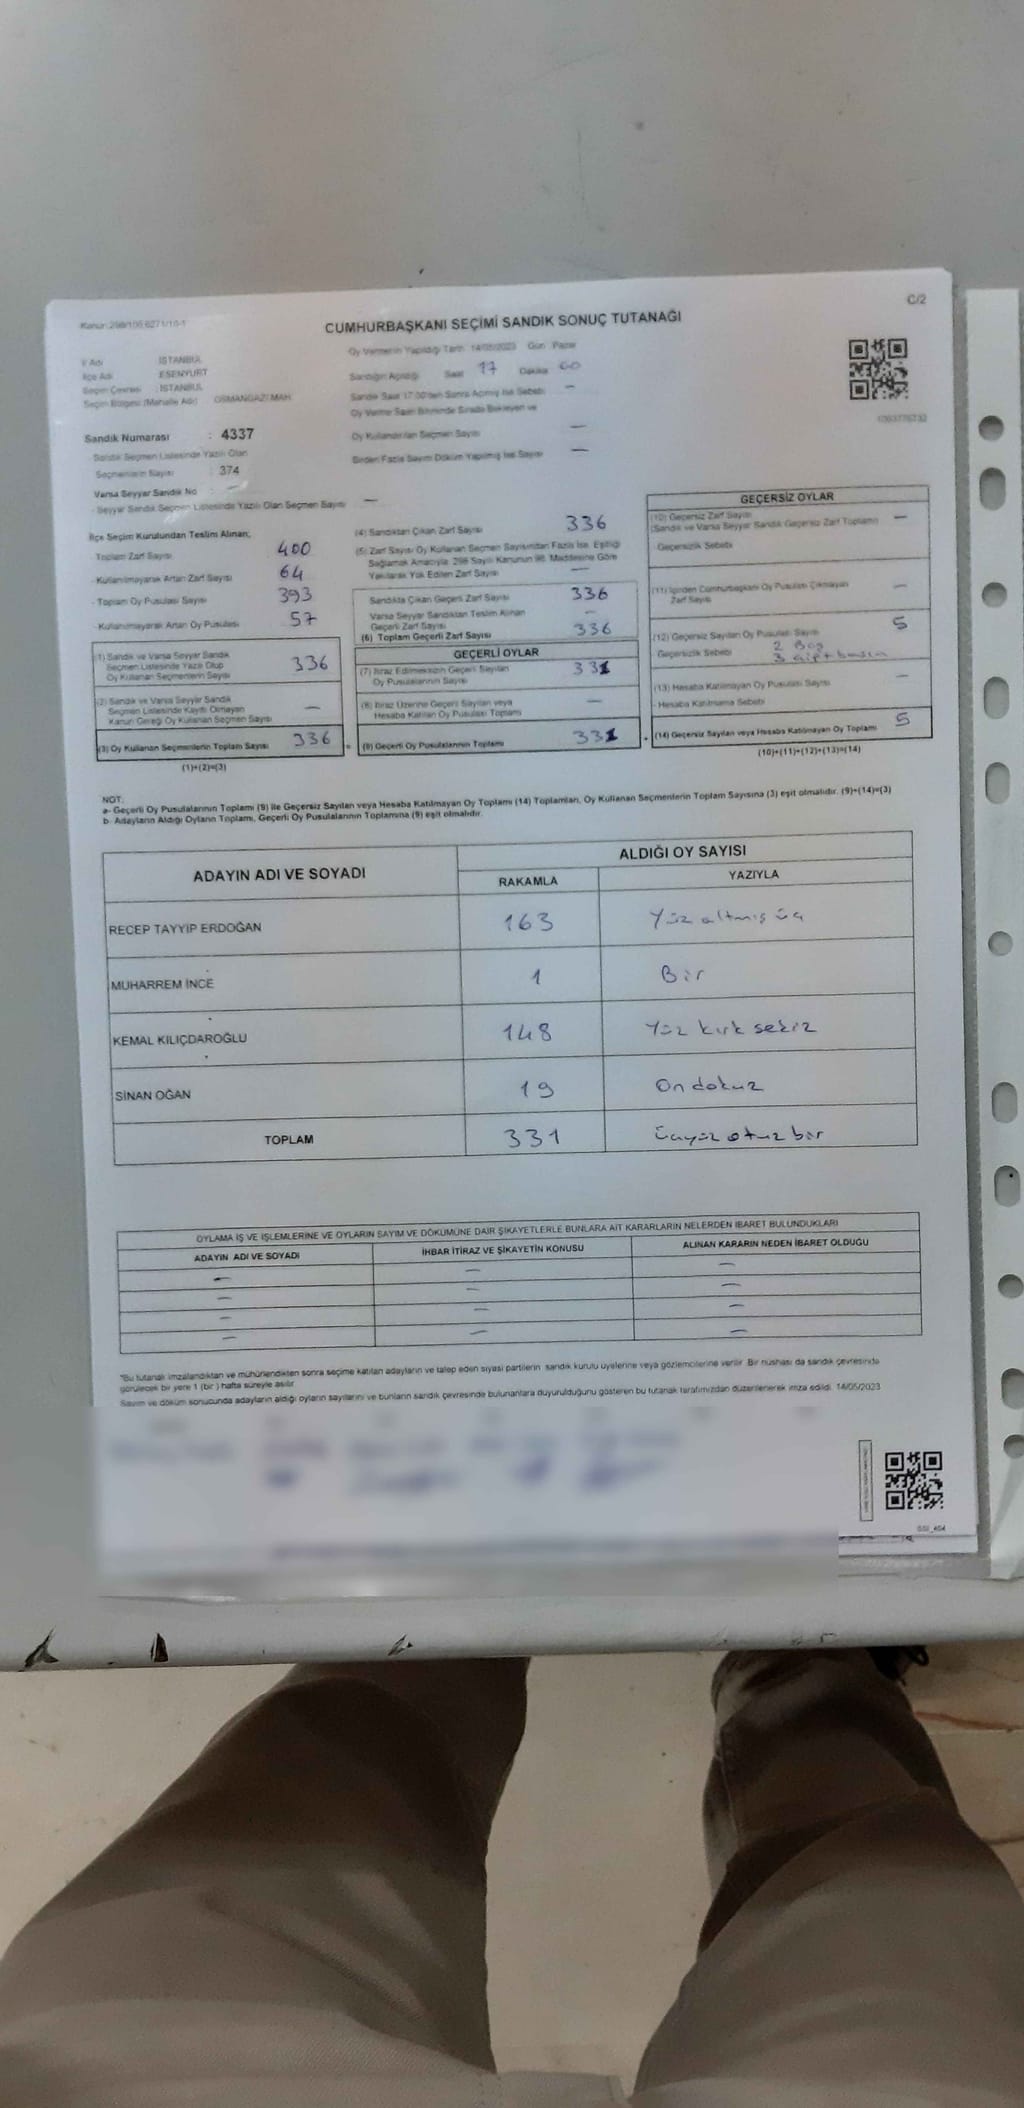 C/2
Kanun:298/105,6271/10-1
CUMHURBAŞKANI SEÇİMİ SANDIK SONUÇ TUTANAĞI
İl Adı : İSTANBUL
İlçe Adı : ESENYURT
Seçim Çevresi : İSTANBUL
Seçim Bölgesi (Mahalle Adı) : OSMANGAZİ MAH.
Sandık Numarası : 4337
Sandık Seçmen Listesinde Yazılı Olan
Seçmenlerin Sayısı : 374
Varsa Seyyar Sandık No : —
- Seyyar Sandık Seçmen Listesinde Yazılı Olan Seçmen Sayısı —
Oy Vermenin Yapıldığı Tarih: 14/05/2023 Gün: Pazar
Sandığın Açıldığı Saat 17 Dakika 00
Sandık Saat 17.00'den Sonra Açılmış İse Sebebi —
Oy Verme Saati Bitiminde Sırada Bekleyen ve
Oy Kullandırılan Seçmen Sayısı —
Birden Fazla Sayım Döküm Yapılmış İse Sayısı —
İlçe Seçim Kurulundan Teslim Alınan;
- Toplam Zarf Sayısı 400
- Kullanılmayarak Artan Zarf Sayısı 64
- Toplam Oy Pusulası Sayısı 393
- Kullanılmayarak Artan Oy Pusulası 57
(1) Sandık ve Varsa Seyyar Sandık
Seçmen Listesinde Yazılı Olup
Oy Kullanan Seçmenlerin Sayısı 336
(2) Sandık ve Varsa Seyyar Sandık
Seçmen Listesinde Kayıtlı Olmayan
Kanun Gereği Oy Kullanan Seçmen Sayısı —
(3) Oy Kullanan Seçmenlerin Toplam Sayısı 336
(1)+(2)=(3)
(4) Sandıktan Çıkan Zarf Sayısı 336
(5) Zarf Sayısı Oy Kullanan Seçmen Sayısından Fazla İse, Eşitliği
Sağlamak Amacıyla 298 Sayılı Kanunun 98. Maddesine Göre
Yakılarak Yok Edilen Zarf Sayısı —
Sandıkta Çıkan Geçerli Zarf Sayısı 336
Varsa Seyyar Sandıktan Teslim Alınan
Geçerli Zarf Sayısı —
(6) Toplam Geçerli Zarf Sayısı 336
GEÇERLİ OYLAR
(7) İtiraz Edilmeksizin Geçerli Sayılan
Oy Pusulalarının Sayısı 331
(8) İtiraz Üzerine Geçerli Sayılan veya
Hesaba Katılan Oy Pusulası Toplamı —
(9) Geçerli Oy Pusulalarının Toplamı 331
GEÇERSİZ OYLAR
(10) Geçersiz Zarf Sayısı —
(Sandık ve Varsa Seyyar Sandık Geçersiz Zarf Toplamı)
Geçersizlik Sebebi
(11) İçinden Cumhurbaşkanı Oy Pusulası Çıkmayan
Zarf Sayısı —
(12) Geçersiz Sayılan Oy Pusulası Sayısı 5
Geçersizlik Sebebi 2 Boş
3
(13) Hesaba Katılmayan Oy Pusulası Sayısı —
- Hesaba Katılmama Sebebi
(14) Geçersiz Sayılan veya Hesaba Katılmayan Oy Toplamı 5
(10)+(11)+(12)+(13)=(14)
NOT:
a- Geçerli Oy Pusulalarının Toplamı (9) ile Geçersiz Sayılan veya Hesaba Katılmayan Oy Toplamı (14) Toplamları, Oy Kullanan Seçmenlerin Toplam Sayısına (3) eşit olmalıdır. (9)+(14)=(3)
b- Adayların Aldığı Oyların Toplamı, Geçerli Oy Pusulalarının Toplamına (9) eşit olmalıdır.
ADAYIN ADI VE SOYADI ALDIĞI OY SAYISI
RAKAMLA YAZIYLA
RECEP TAYYİP ERDOĞAN 163 Yüz altmış üç
MUHARREM İNCE 1 Bir
KEMAL KILIÇDAROĞLU 148 Yüz kırk sekiz
SİNAN OĞAN 19 On dokuz
TOPLAM 331 üçyüz otuz bir
OYLAMA İŞ VE İŞLEMLERİNE VE OYLARIN SAYIM VE DÖKÜMÜNE DAİR ŞİKAYETLERLE BUNLARA AİT KARARLARIN NELERDEN İBARET BULUNDUKLARI
ADAYIN ADI VE SOYADI İHBAR İTİRAZ VE ŞİKAYETİN KONUSU ALINAN KARARIN NEDEN İBARET OLDUĞU
— — —
— — —
— — —
— — —
*Bu tutanak imzalandıktan ve mühürlendikten sonra seçime katılan adayların ve talep eden siyasi partilerin sandık kurulu üyelerine veya gözlemcilerine verilir. Bir nüshası da sandık çevresinde
görülecek bir yere 1 (bir) hafta süreyle asılır.
Sayım ve döküm sonucunda adayların aldığı oyların sayılarını ve bunların sandık çevresinde bulunanlara duyurulduğunu gösteren bu tutanak tarafımızdan düzenlenerek imza edildi. 14/05/2023